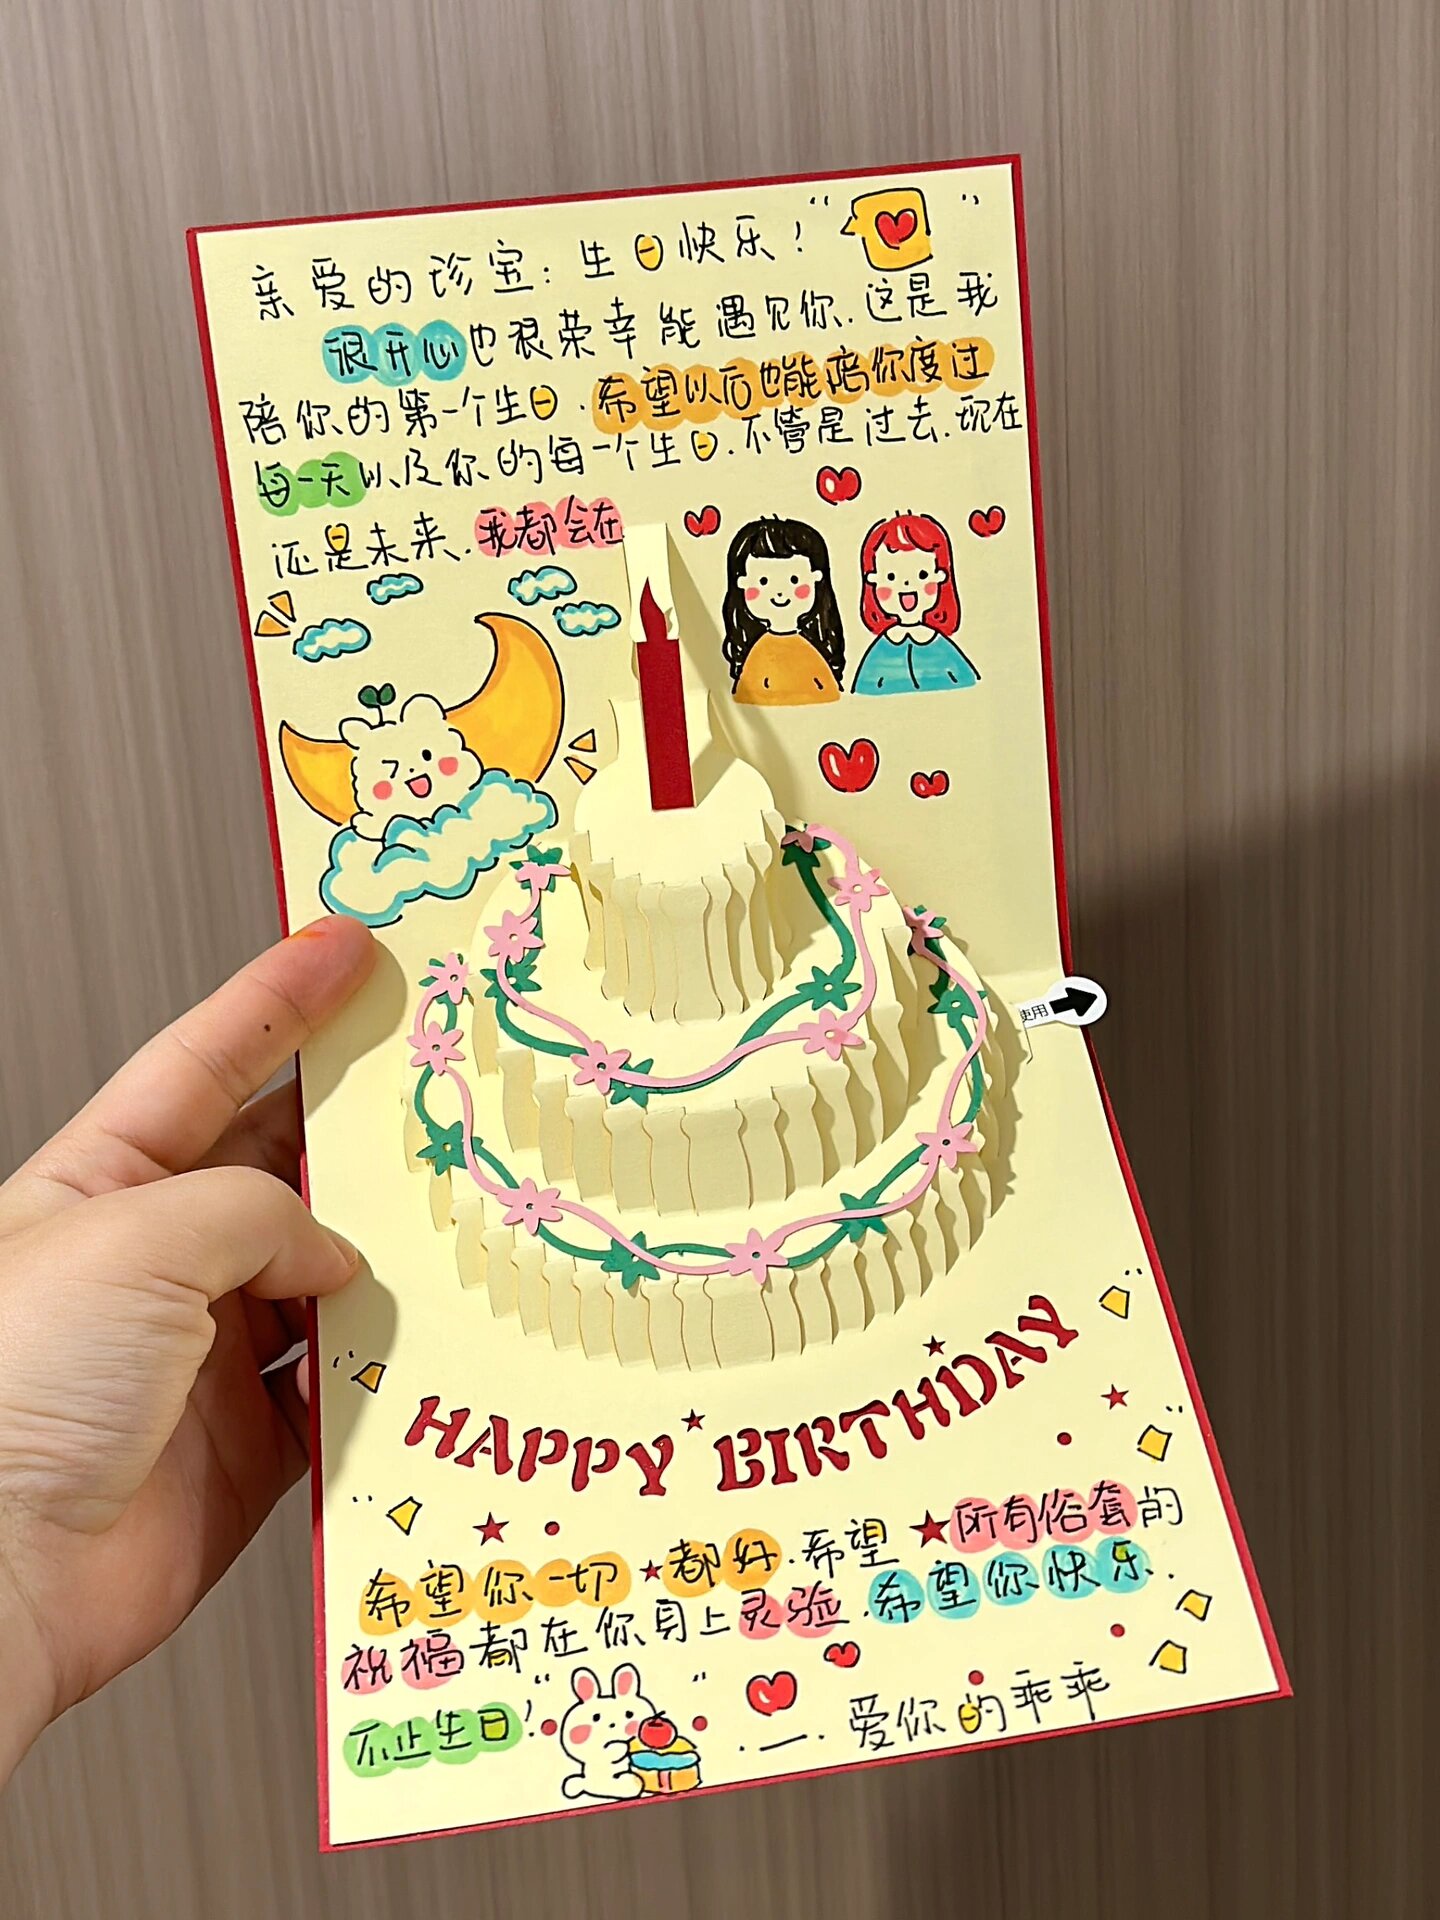 亲爱的珍宝：生日快乐！
很开心也很荣幸能遇见你.这是我
陪你的第一个生日.希望以后也能陪你度过
每一天以及你的每一个生日.不管是过去.现在
还是未来.我都会在
使用
HAPPY BIRTHDAY
希望你一切都好.希望所有俗套的
祝福都在你身上灵验.希望你快乐.
不止生日！
·一.爱你的乖乖